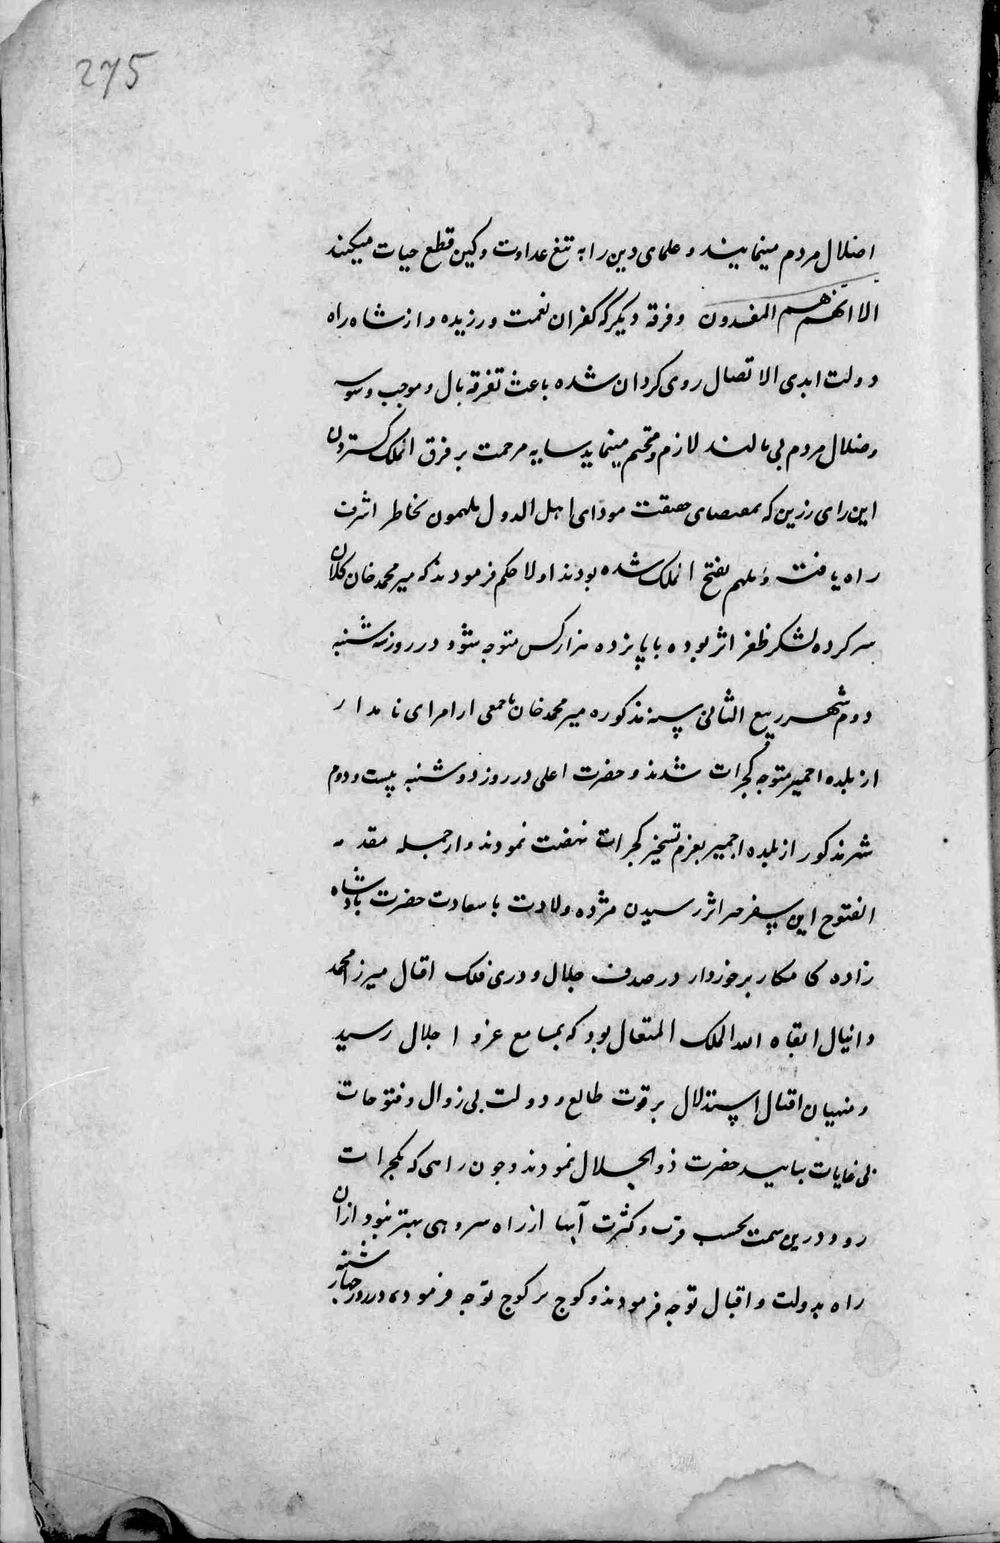 275
اضلال مردم مینمایند و علمای دین را به تیغ عداوت و کین قطع حیات میکنند
الا انهم هم المفسدون وفرقه دیگر که کفران نعمت ورزیده و از شاه راه
دولت ابدی الاتصال روی کردان شده باعث تفرقه بال و موجب وسوسه
وضلال مردم بی مالند لازم و متحتم مینماید سایه مرحمت بر فرق انملک کستردن
این رای رزین که بمقتضای حقیقت مودای اهل الدول ملهمون بخاطر اشرف
راه یافت و ملهم بفتح انملک شده بودند اولا حکم فرمودند که میر محمد خان کلان
سرکرده لشکر ظفر اثر بوده با پانزده هزار کس متوجه شود و در روز سه شنبه
دوم شهر ربیع الثانی سنه مذکوره میر محمد خان با جمعی از امرای نامدار
از بلده اجمیر متوجه کجرات شدند و حضرت اعلی در روز دوشنبه بیست و دوم
شهر مذکور از بلده اجمیر بعزم تسخیر کجرات نهضت نمودند و از جمله مقدمه
الفتوح این سفر اثر رسیدن مژده ولادت با سعادت حضرت بادشاه
زاده کامکار برخوردار در صدف جلال و دری فلک اقبال میرزا محمد
دانیال ابقاه الله الملک المتعال بود که بمسامع عز و اجلال رسید
و منهیان اقبال استدلال بر قوت طالع و دولت بی زوال و فتوحات
بی غایات بتایید حضرت ذوالجلال نمودند و چون راهی که بکجرات
رود درین سمت بحسب قرب و کثرت آبها از راه سروهی بهتر نبود ازان
راه بدولت و اقبال توجه فرمودند و کوچ بر کوچ توجه فرموده در روز چهار شنبه